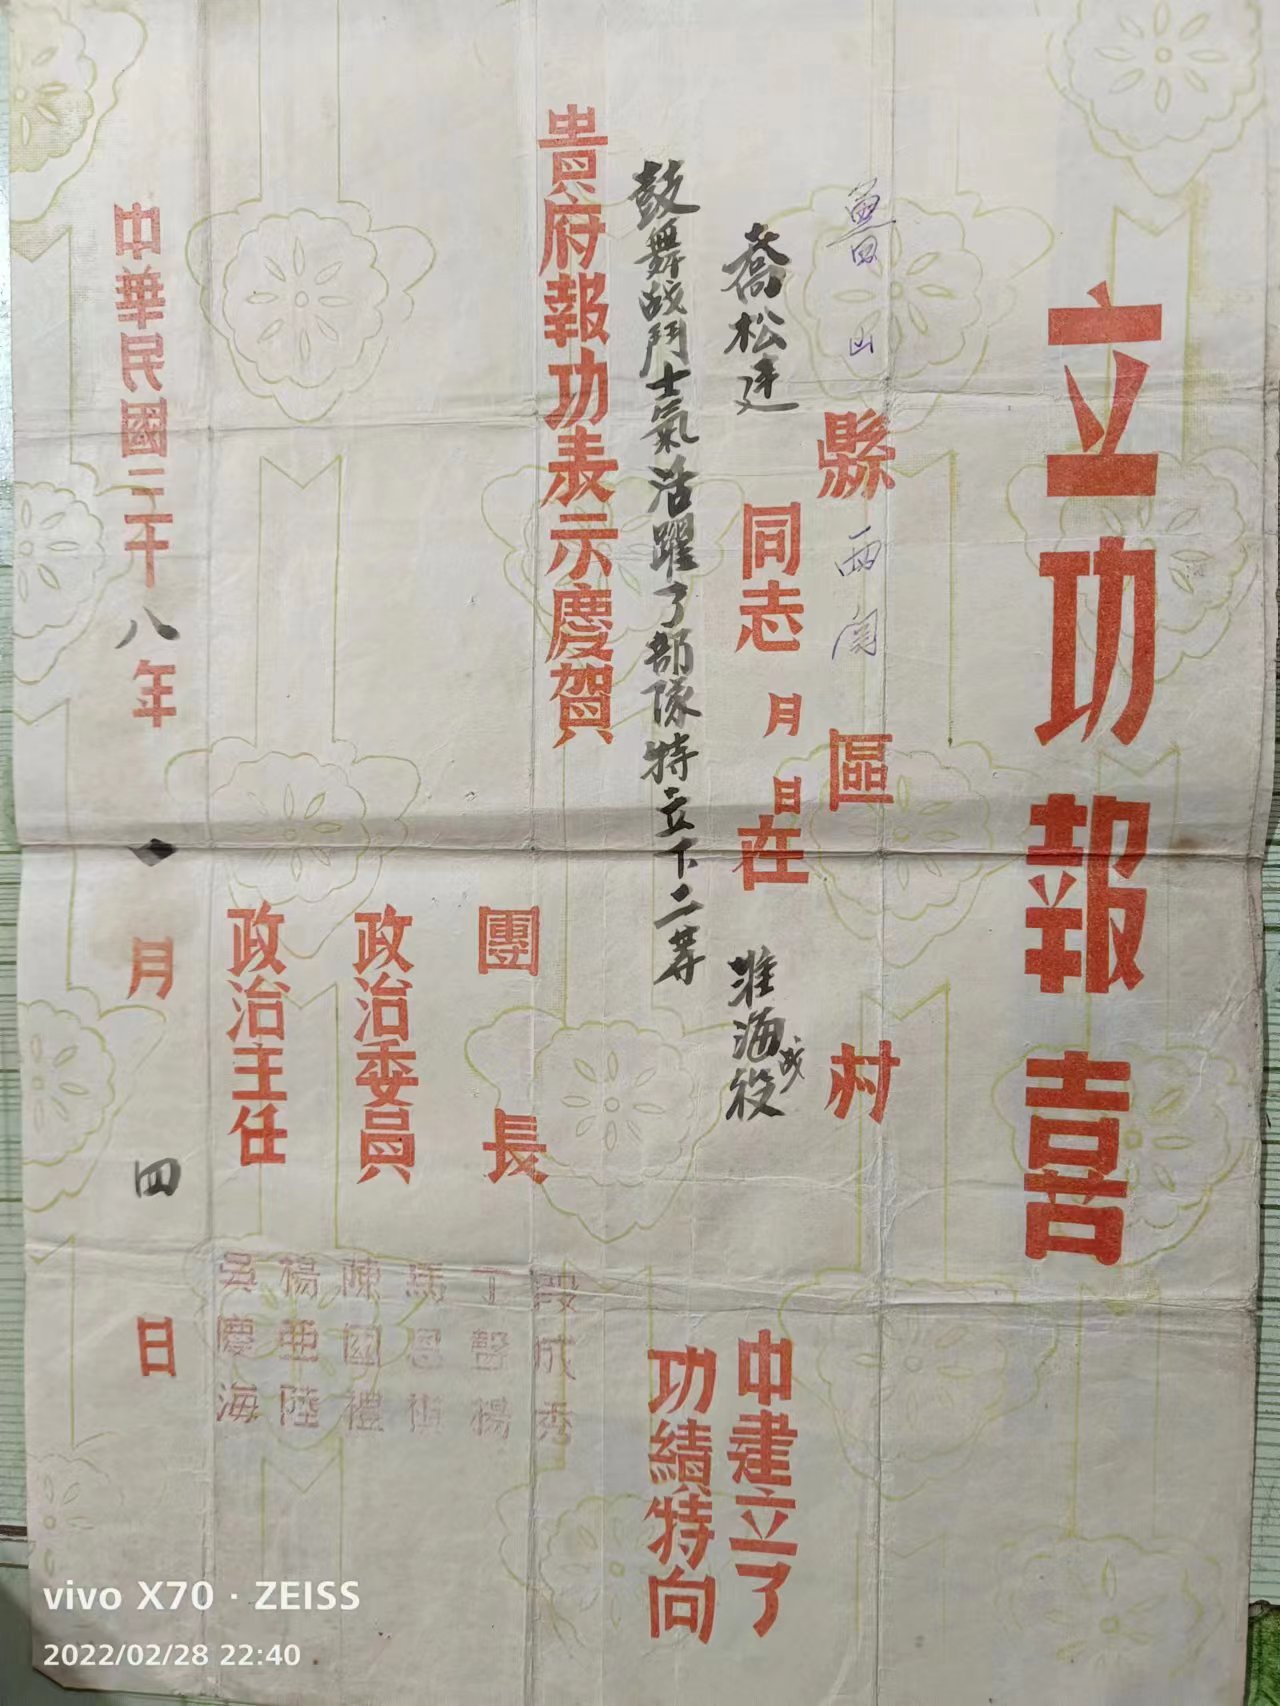 立功報喜
魯山縣西関區 村
喬松廷同志 月 日在淮海战役中建立了
鼓舞战鬥士氣活躍了部隊特立下二等功績特向
貴府報功表示慶賀
團長 段成秀
丁磬楊
政治委員 馬恩
陳國禮
政治主任 楊亜陸
吳慶海
中華民國三十八年一月四日
vivo X70 · ZEISS
2022/02/28 22:40